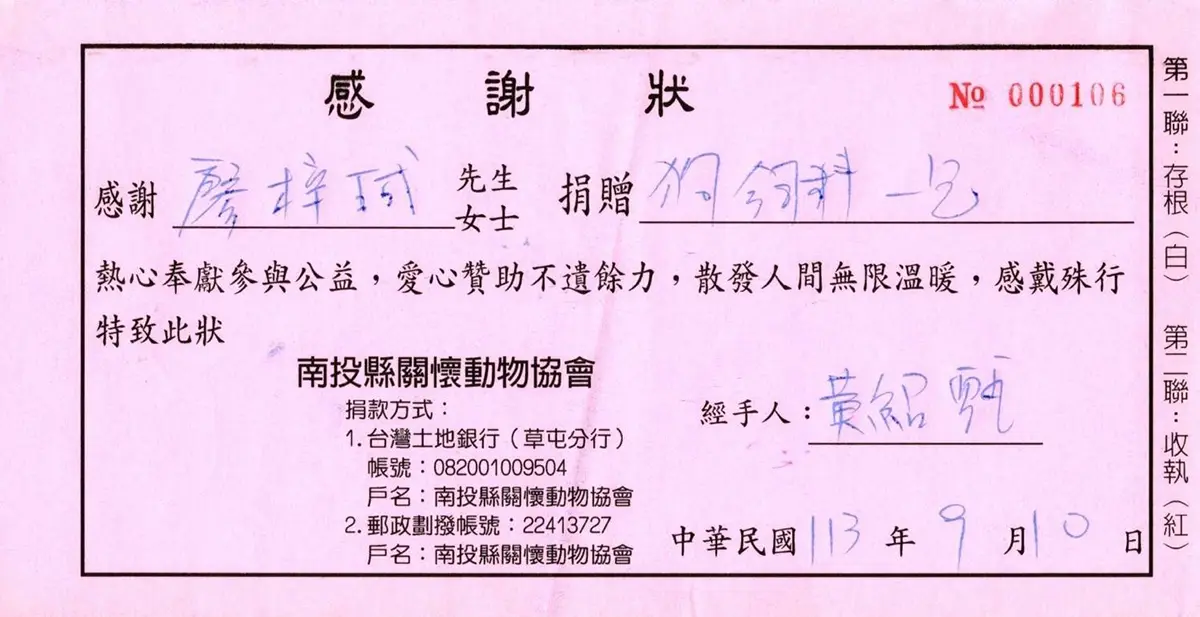 感謝狀
No 000106
感謝 廖梓珹 先生 女士 捐贈 狗飼料一包
熱心奉獻參與公益，愛心贊助不遺餘力，散發人間無限溫暖，感戴殊行
特致此狀
南投縣關懷動物協會
捐款方式：
1. 台灣土地銀行（草屯分行）
帳號：082001009504
戶名：南投縣關懷動物協會
2. 郵政劃撥帳號：22413727
戶名：南投縣關懷動物協會
經手人：黃紹甄
中華民國 113 年 9 月 10 日
第一聯：存根（白） 第二聯：收執（紅）